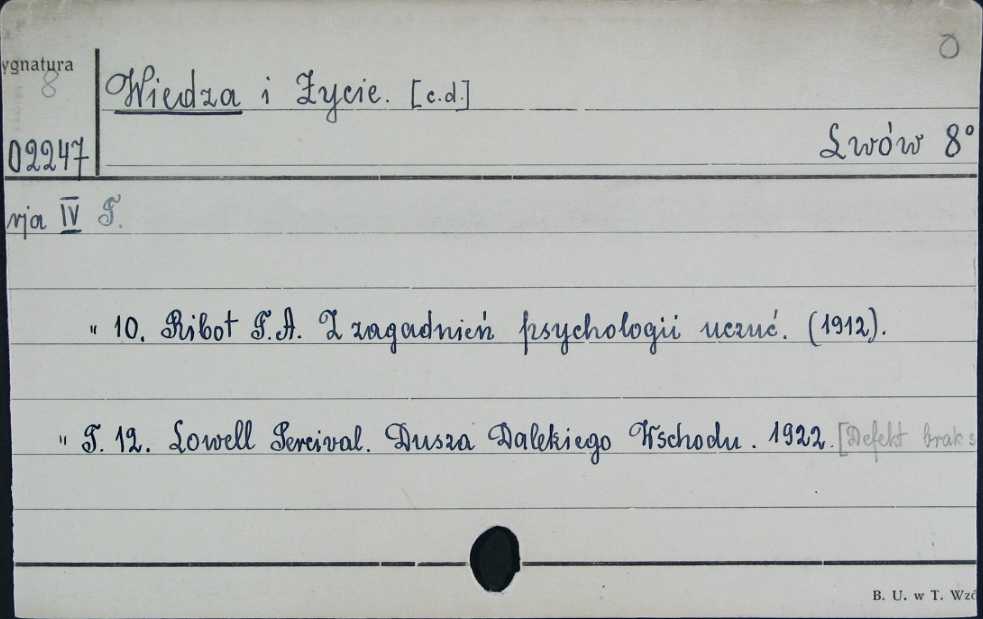 O
ygnatura
8
Wiedza i Życie. [c.d.]
02247
Lwów 8°
rja IV T.
" 10. Ribot T.A. Z zagadnień psychologii uczuć. (1912).
" T. 12. Lowell Percival. Dusza Dalekiego Wschodu. 1922. [Defekt brak s
B. U. w T. Wzó